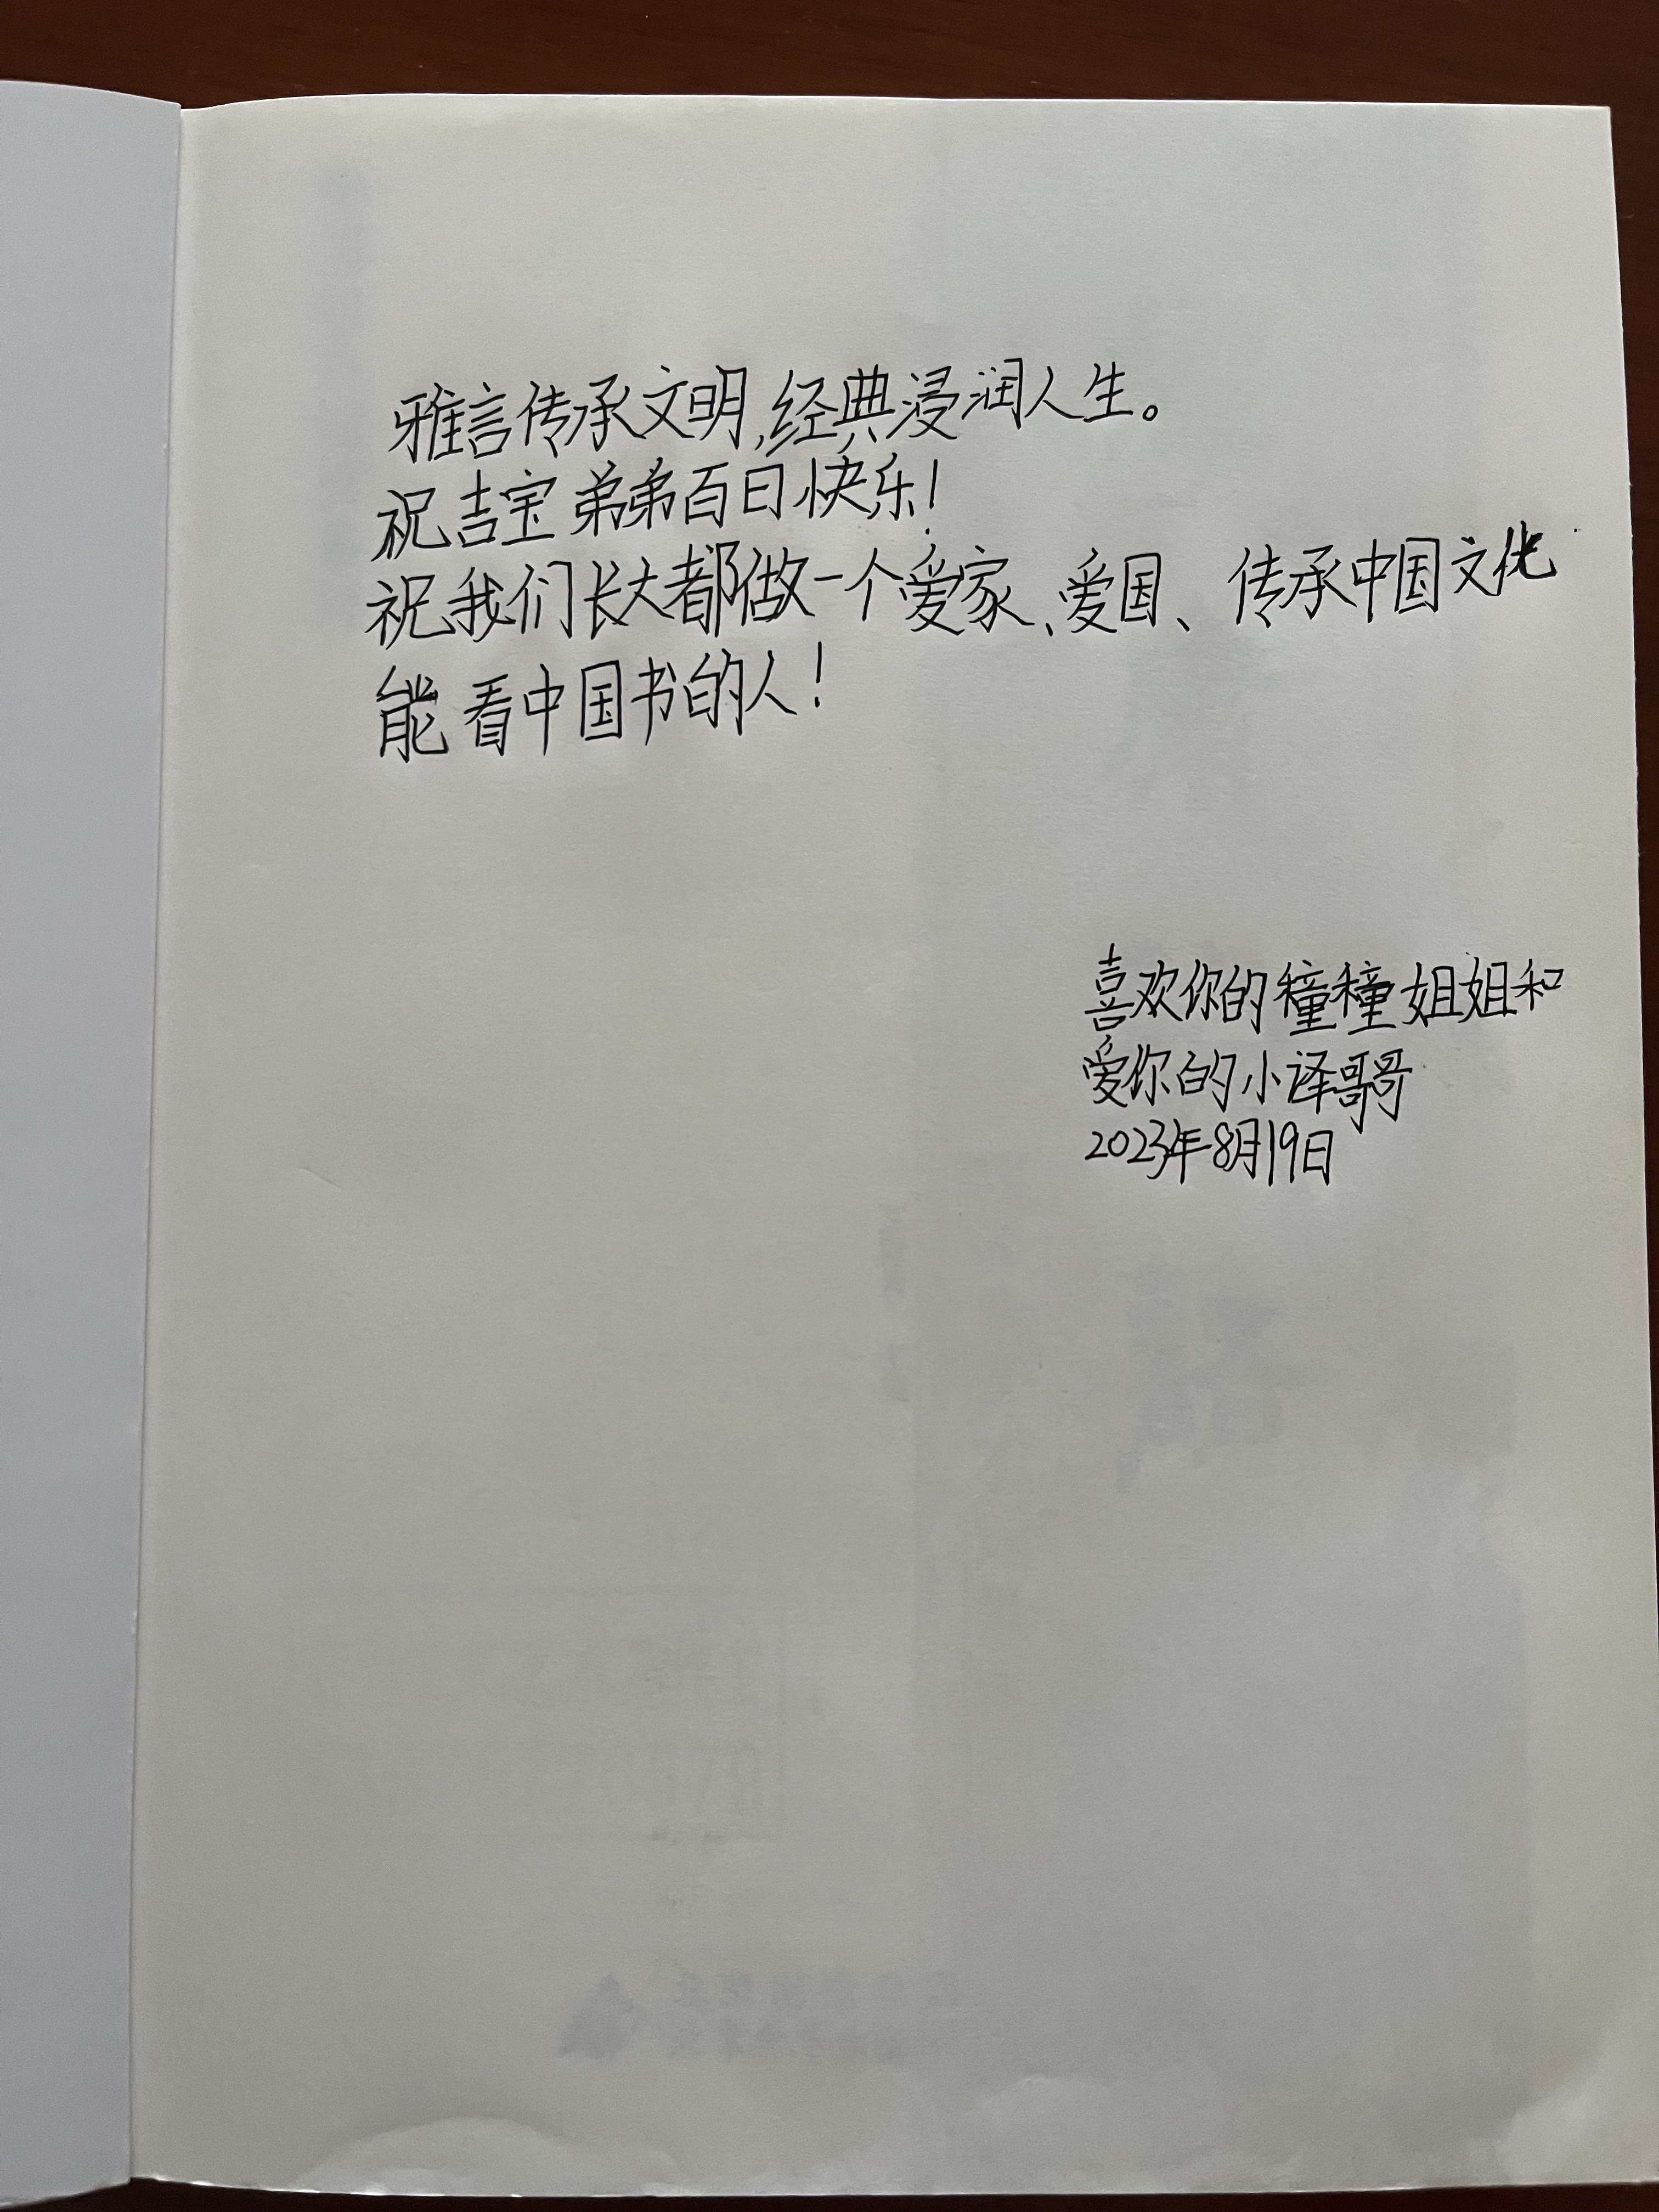 雅言传承文明,经典浸润人生。
祝吉宝弟弟百日快乐!
祝我们长大都做一个爱家、爱国、传承中国文化
能看中国书的人!
喜欢你的穜穜姐姐和
爱你的小译哥哥
2023年8月19日